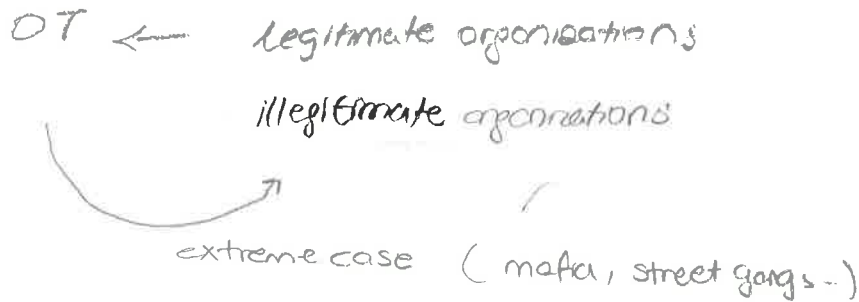 OT ← legitimate organizations
illegitimate organizations
extreme case (mafia, street gangs..)